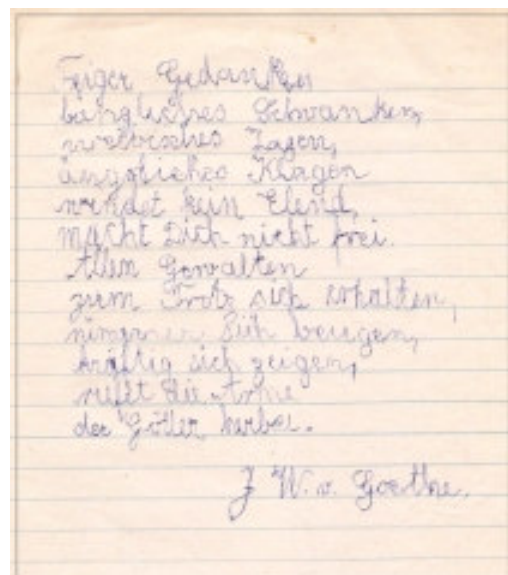 Feiger Gedanken
bängliches Schwanken,
weibisches Zagen,
ängstliches Klagen
wendet kein Elend,
macht Dich nicht frei.
Allen Gewalten
zum Trotz sich erhalten,
nimmer sich beugen,
kräftig sich zeigen,
rufet die Arme
der Götter herbei.
J W. v. Goethe.